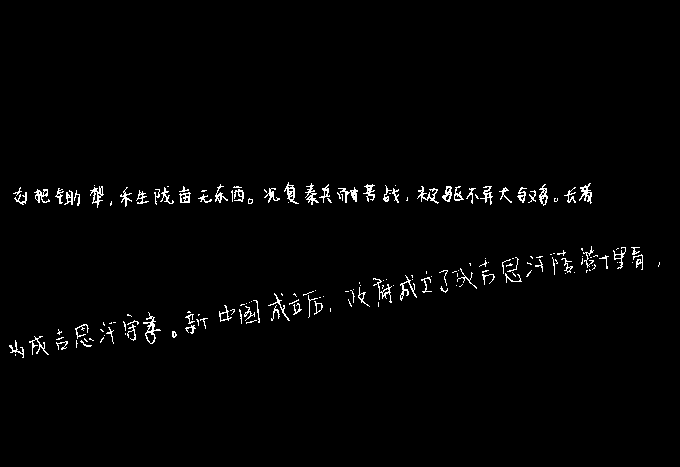 把锄犁,禾生陇亩无东西。况复秦兵耐苦战,被驱不异犬与鸡。长者
为成吉思汗守孝。新中国成立后,政府成立了成吉思汗陵管理